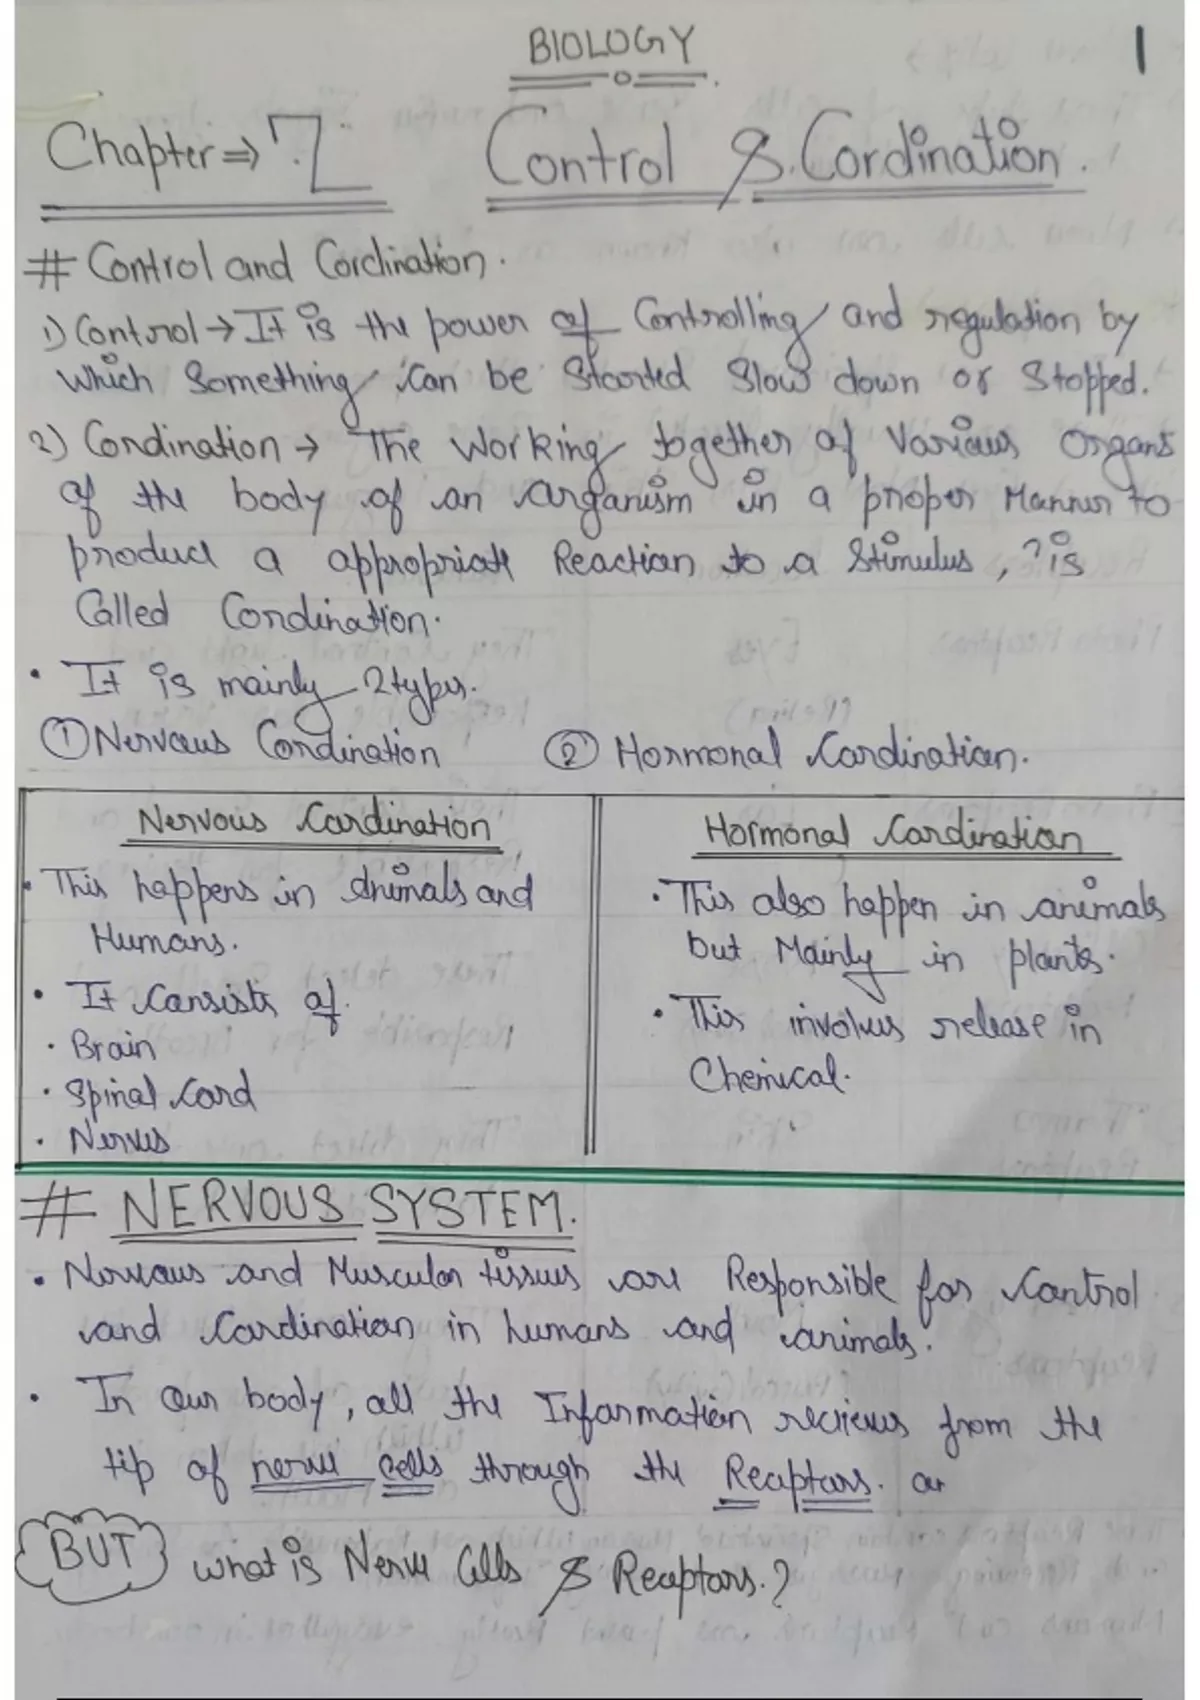 BIOLOGY
1
Chapter ⇒ 7 Control & Cordination.
# Control and Cordination.
1) Control → It is the power of Controlling and regulation by
which Something Can be Started Slow down or Stopped.
2) Cordination → The Working together of Various Organs
of the body of an organism in a proper Manner to
produce a appropriate Reaction to a Stimulus, ? is
Called Cordination.
• It is mainly 2 types.
① Nervous Cordination ② Hormonal Cordination.
Nervous Cordination
• This happens in Animals and
Humans.
• It Consists of.
• Brain
• Spinal Cord
• Nerves
Hormonal Cordination
• This also happen in animals
but Mainly in plants.
• This involves release in
Chemical.
# NERVOUS SYSTEM.
• Nervous and Muscular tissues are Responsible for Control
and Cordination in humans and animals.
• In Our body, all the Information recieves from the
tip of nerve cells through the Receptors. or
BUT what is Nerve Cells & Receptors.?